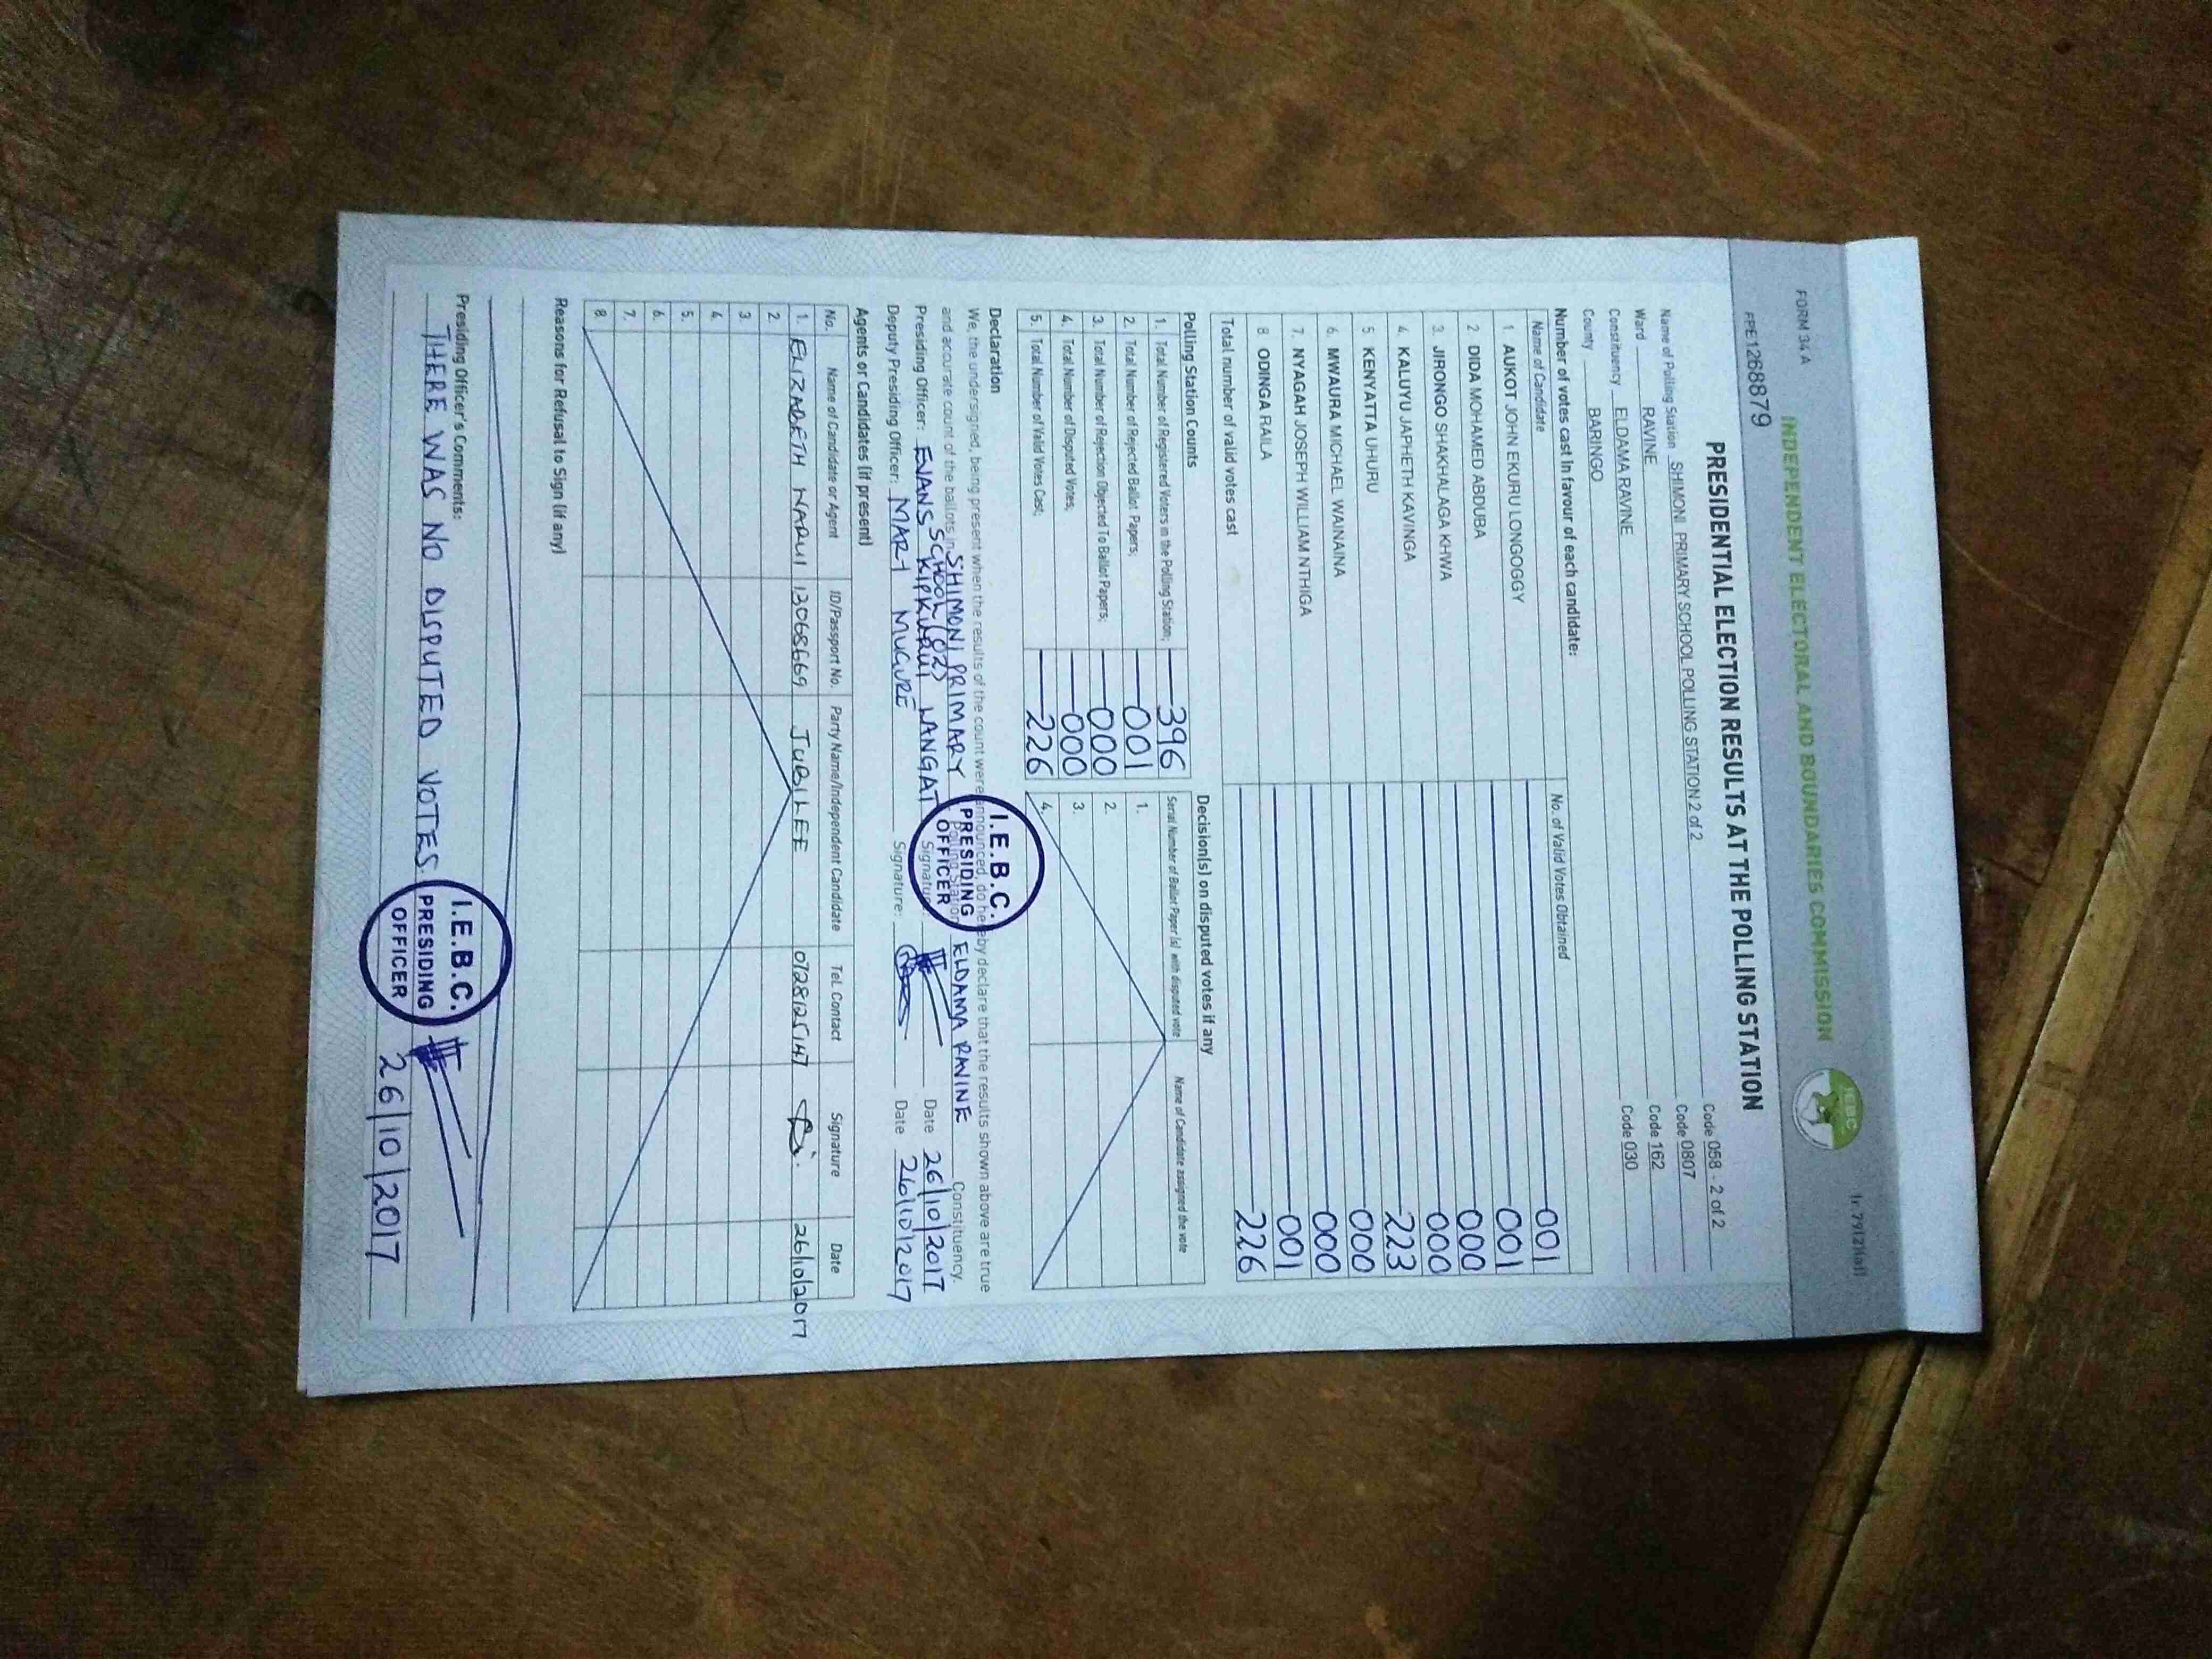 FORM 34 A
INDEPENDENT ELECTORAL AND BOUNDARIES COMMISSION
IEBC
FPE1268879
PRESIDENTIAL ELECTION RESULTS AT THE POLLING STATION
Name of Polling Station SHIMONI PRIMARY SCHOOL POLLING STATION 2 of 2 Code 058 - 2 of 2
Ward RAVINE Code 0807
Constituency ELDAMA RAVINE Code 162
County BARINGO Code 030
Number of votes cast in favour of each candidate:
Name of Candidate No. of Valid Votes Obtained
1. AUKOT JOHN EKURU LONGOGGY 001
2 DIDA MOHAMED ABDUBA 001
3. JIRONGO SHAKHALAGA KHWA 000
4. KALUYU JAPHETH KAVINGA 000
5 KENYATTA UHURU 223
6. MWAURA MICHAEL WAINAINA 000
7. NYAGAH JOSEPH WILLIAM NTHIGA 000
8. ODINGA RAILA 001
Total number of valid votes cast 226
Polling Station Counts
1. Total Number of Registered Voters in the Polling Station; 396
2. Total Number of Rejected Ballot Papers; 001
3. Total Number of Rejection Objected To Ballot Papers; 000
4. Total Number of Disputed Votes; 000
5. Total Number of Valid Votes Cast; 226
Decision(s) on disputed votes if any
Serial Number of Ballot Paper (s) with disputed vote Name of Candidate assigned the vote
1.
2.
3.
4.
Declaration
We, the undersigned, being present when the results of the count were announced, do hereby declare that the results shown above are true
and accurate count of the ballots in SHIMONI PRIMARY SCHOOL (02) Polling Station ELDAMA RAVINE Constituency.
Presiding Officer: EVANS KIPKURUI LANGAT Signature: Date 26/10/2017
Deputy Presiding Officer: MARY MUGURE Signature: Date 26/10/2017
I.E.B.C.
PRESIDING
OFFICER
Agents or Candidates (if present)
No. Name of Candidate or Agent ID/Passport No. Party Name/Independent Candidate Tel. Contact Signature Date
1. ELIZABETH 13068669 JUBILEE 0728125147 26/10/2017
2.
3.
4.
5.
6.
7.
8.
Reasons for Refusal to Sign (if any)
Presiding Officer's Comments:
THERE WAS NO DISPUTED VOTES.
I.E.B.C.
PRESIDING
OFFICER
26/10/2017